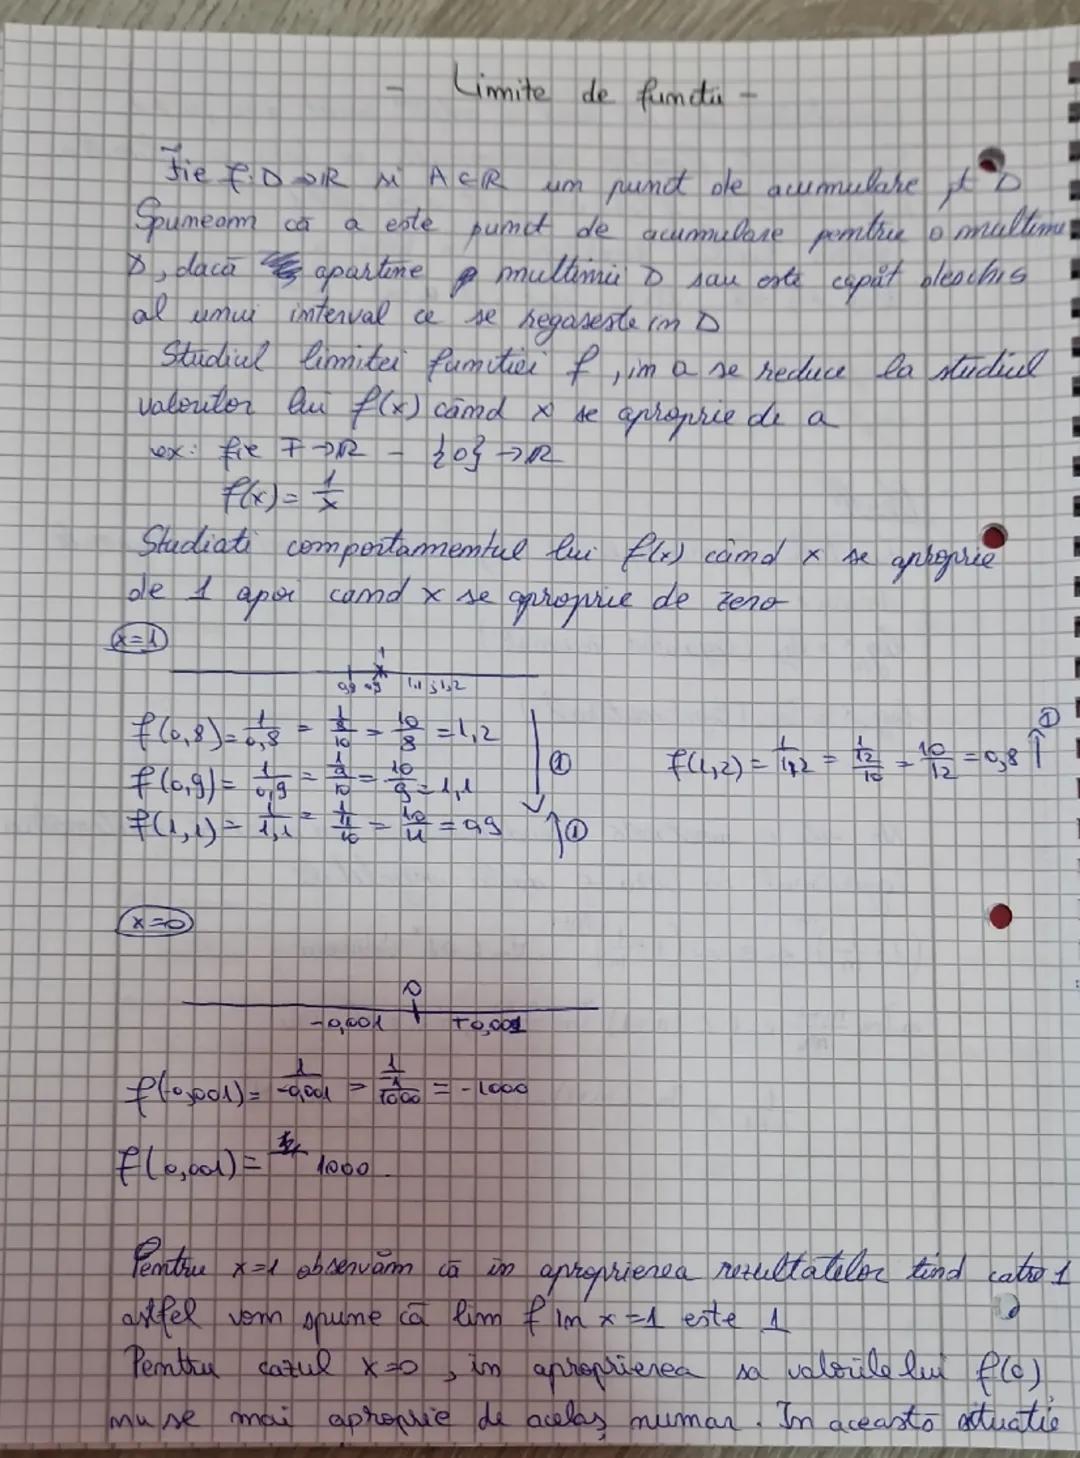 - Limite de functii -
Fie f: D → R si A ∈ R um punct de acumulare pt D
Spuneam că a este punct de acumulare pentru o multime
D, dacă apartine multimii D sau este capăt deschis
al unui interval ce se regaseste in D
Studiul limitei functiei f, im a se reduce la studiul
valorilor lui f(x) când x se aproprie de a
ex: fie F → R - {0} → R
f(x) = 1/x
Studiati comportamentul lui f(x) când x se aproprie
de 1 apoi cand x se aproprie de zero
x=1
1
0,8 0,9 1,1 1,2
f(0,8) = 1/0,8 = 1/(8/10) = 10/8 = 1,2
f(1,2) = 1/1,2 = 1/(12/10) = 10/12 = 0,8 ↑ ①
f(0,9) = 1/0,9 = 1/(9/10) = 10/9 = 1,1 ↓ ①
f(1,1) = 1/1,1 = 1/(11/10) = 10/11 = 0,9 ↑ ①
x=0
0
-0,001 +0,001
f(-0,001) = 1/-0,001 = 1/(1/1000) = -1000
f(0,001) = 1000.
Pentru x=1 observăm că în aproprierea rezultatelor tind catre 1
astfel vom spune că lim f in x=1 este 1
Pentru cazul x=0, in aproprierea sa valorile lui f(0)
nu se mai aproprie de acelaș numar. In această situatie